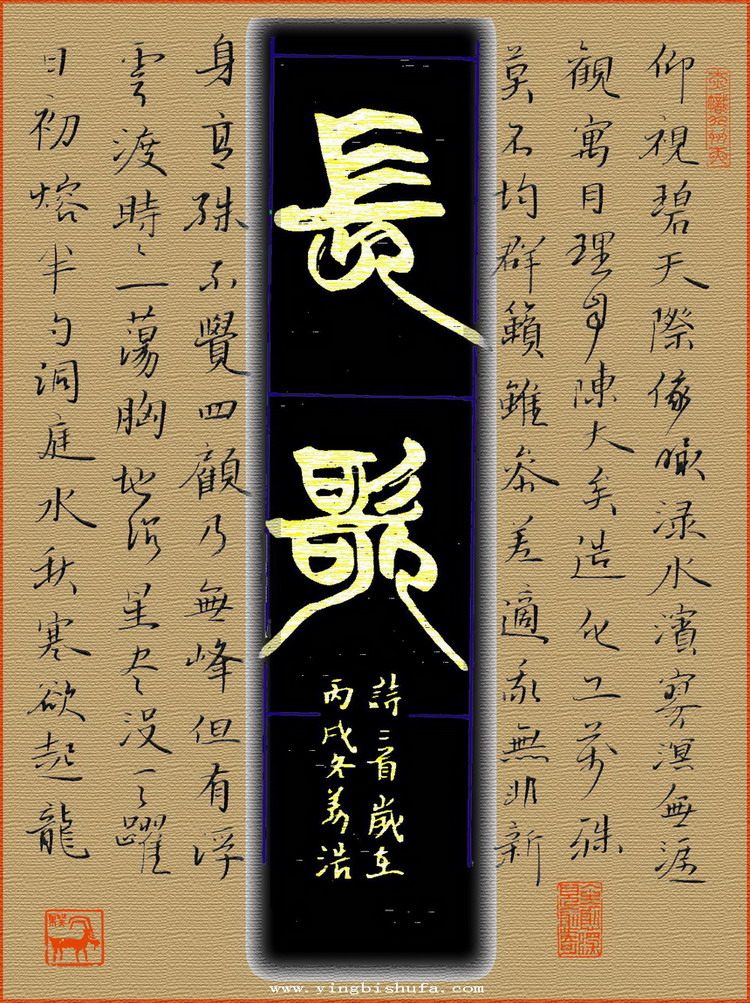 仰視碧天際俯瞰渌水濱寥溟無涯
觀寓目理自陳大矣造化工萬殊
莫不均群籟雖參差適我無非新
長歌
詩二首歲在
丙戌冬浩
身高殊不覺四顧乃無峰但有浮
雲渡時々一蕩胸地沉星盡沒天躍
日初熔半勺洞庭水秋寒欲起龍
www.yingbishufa.com